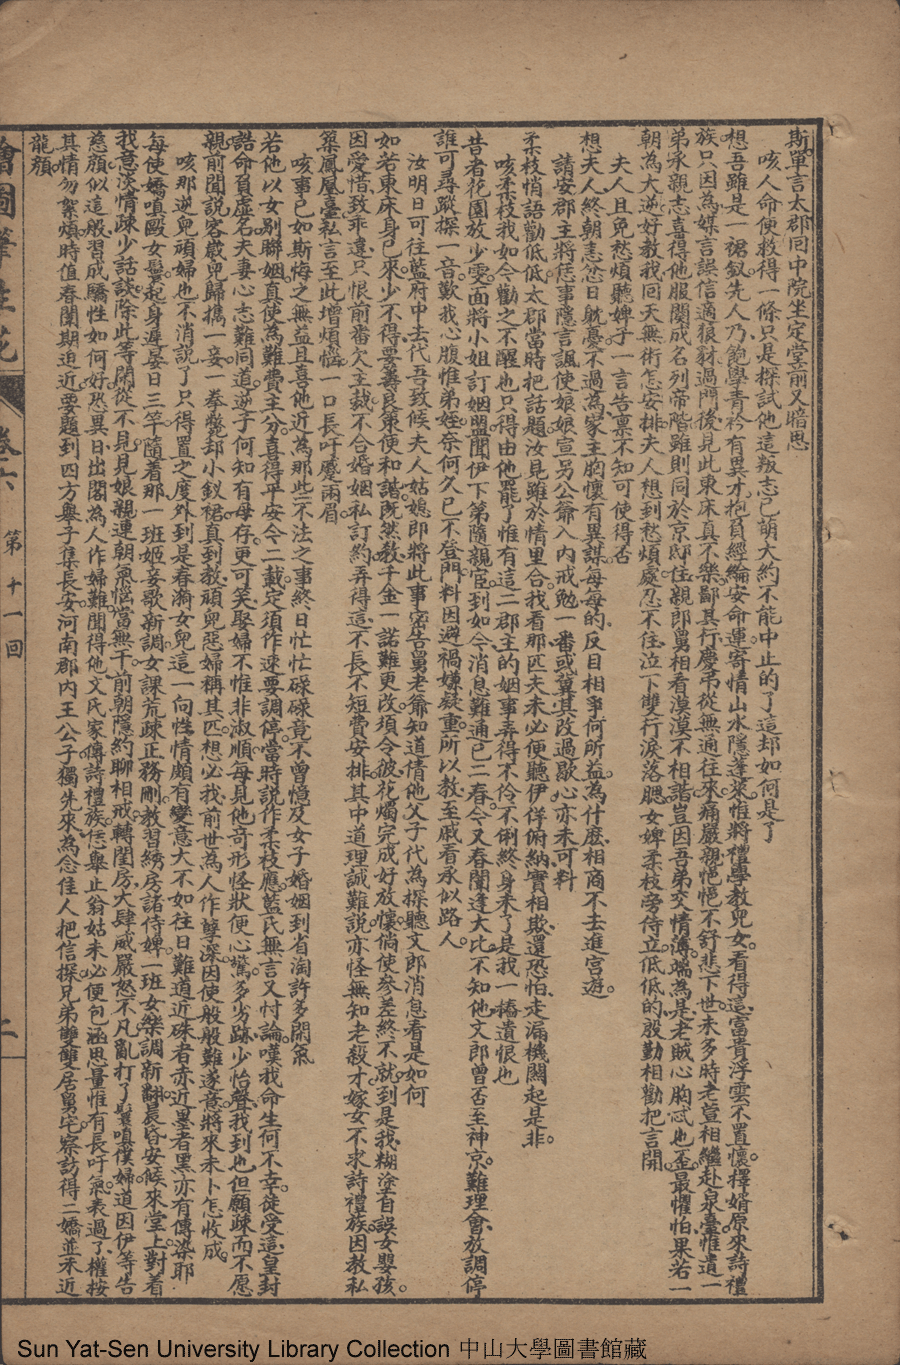 斯單言太郡回中院坐定堂前又暗思
咳人命便救得一條只是探試他這叛志已萌大約不能中止的了這却如何是了
想吾雖是一裙釵先人乃飽學青衿有異才抱負經綸安命運寄情山水隱蓬萊惟將禮學教兒女看得這富貴浮雲不置懷擇婿原來詩禮
族只因為媒言誤信過狼豺過門後見此東床真不樂鄙其行慶弔從無通往來痛嚴親悒悒不舒悲下世未多時老萱相繼赴泉臺惟遺一
弟承親志喜得他服闋成名列帝階雖則同於京邸住親郎舅相看漠漠不相諧豈因吾弟交情薄端為是老賊心胸忒也歪最懼怕果若一
朝為大逆好教我回天無術怎安排夫人想到愁煩處忍不住泣下雙行淚落腮女婢柔枝旁侍立低低的殷勤相勸把言開
夫人且免愁煩聽婢子一言告禀不知可使得否
想夫人終朝恚忿日躭憂不過為家主胸懷有異謀每每的反目相爭何所益為什麽相商不去進宮遊
請安郡主將恁事隱言諷使娘娘宣另公爺入內戒勉一番或冀其改過歇心亦未可料
柔枝悄語勸低低太郡當時把話題汝見雖於情里合我看那匹夫未必便聽伊佯俯納實相欺還恐怕走漏機關起是非
咳柔枝我如今勸之不醒也只得由他罷了惟有這二郡主的姻事弄得不伶不俐終身未了是我一樁遺恨也
昔者花園放少雯面將小姐訂姻盟聞伊下第隨親宦到如今消息難通已二春今又春闈逢大比不知他文郎曾否至神京難理會放調停
誰可尋蹤探一音歎我心腹惟弟姪奈何久已不登門料因避禍嫌疑重所以教至戚看承似路人
汝明日可往藍府中去代吾致候夫人姑媳即將此事密告舅老爺知道倩他父子代為探聽文郎消息看是如何
如若東床身已來少不得要籌良策便和諧既然教千金一諾難更改須令彼花燭完成好放懷倘使參差終不就到是我糊塗自誤女嬰孩
因愛惜致乖違只恨前番欠主裁不合婚姻私訂約弄得這不長不短費安排其中道理誠難說亦怪無知老殺才嫁女不求詩禮族因教私
築鳳凰臺私言至此增煩惱一口長吁蹙兩眉
咳事已如斯悔之無益且喜他近為那些不法之事終日忙忙碌碌竟不曾憶及女子婚姻到省淘許多閒氣
若他以女別聯姻真使為難費主分喜得平安今二載定須作速要調停當時說作柔枝應藍氏無言又忖論嘆我命生何不幸徒受這皇封
誥命負虛名夫妻心志難同道逆子何知有母存更可笑娶婦不惟非淑順每見他奇形怪狀便心驚多少劣跡少怡聲我到也但願疎而不愿
親前聞說客歲兒歸擕一妾一拳斃却小釵裙真到教頑兒惡婦稱其匹想必我前世為人作孽深因使般般難遂意將來未卜怎收成
咳那逆兒頑婦也不消說了只得置之度外到是春漪女兒這一向性情頗有變意大不如往日難道近硃者赤近墨者黑亦有傳染耶
每使嬌嗔毆女鬟起身遲晏日三竿隨着那一班姬妾歌新調女課荒疎正務刪教習綉房諸侍婢一班女樂調新翻晨昏安候來堂上對着
我意淡情疎少話談除此等閒從不見見娘親運朝氣惱當無干前朝隱約聊相戒轉閨房大肆威嚴怒不凡亂打了鬟嗔僕婦道因伊等告
慈顏似這般習成驕性如何好恐異日出閣為人作婦難聞得他文氏家傳詩禮族恁舉止翁姑未必便包涵思量惟有長吁氣表過了權按
其情勿絮煩時值春闈期迫近要題到四方舉子集長安河南郡內王公子獨先來為念佳人把信探兄弟雙雙居舅宅察訪得二嬌並未近
龍顏
繪圖筆生花
卷六
第十一回
二
Sun Yat-Sen University Library Collection 中山大學圖書館藏